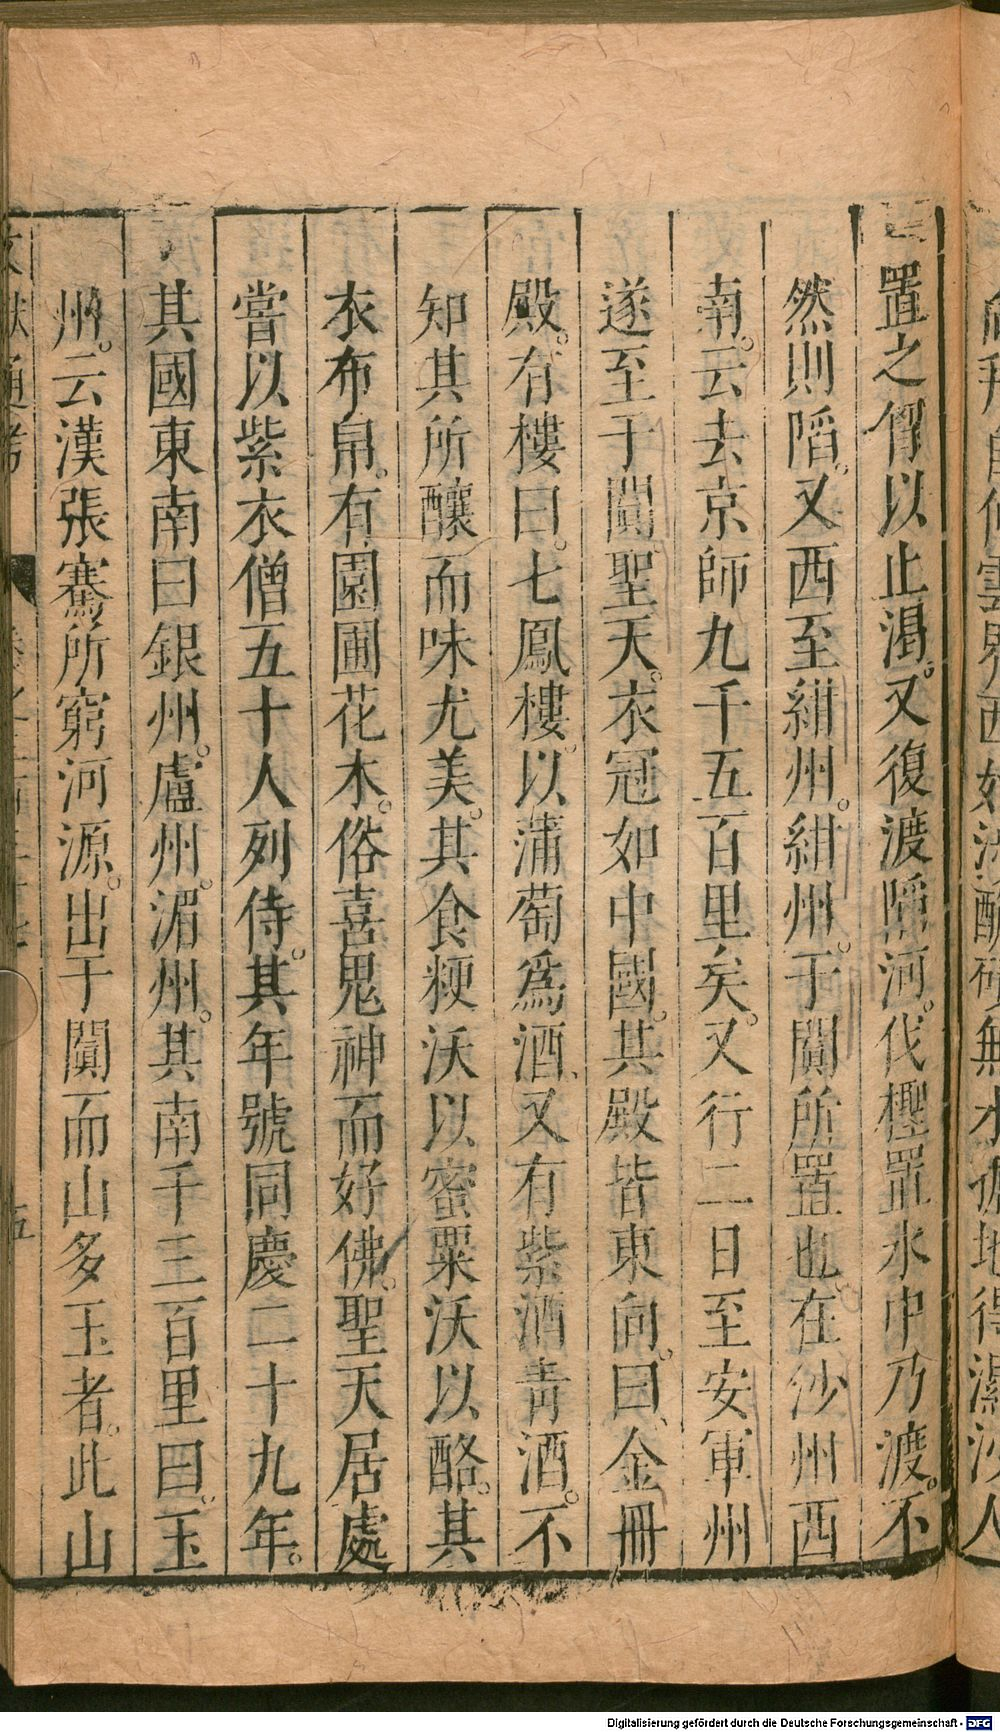 置之𦝫以止渴。又復渡陷河。伐檉置水中乃渡。不
然則陷。又西至紺州。紺州。于闐所置也。在沙州西
南。云去京師九千五百里矣。又行二日至安軍州
遂至于闐。聖天。衣冠如中國。其殿皆東向。曰、金冊
殿。有樓曰。七鳳樓。以蒲萄爲酒、又有紫酒青酒。不
知其所釀而味尤美。其食粳沃以蜜粟沃以酪。其
衣布帛。有園圃花木。俗喜鬼神而好佛。聖天居處
嘗以紫衣僧五十人列侍。其年號同慶二十九年。
其國東南曰銀州。盧州。湄州。其南千三百里曰。玉
州。云漢張騫所窮河源。出于闐而山多玉者。此山
文獻通考
五
Digitalisierung gefördert durch die Deutsche Forschungsgemeinschaft - DFG